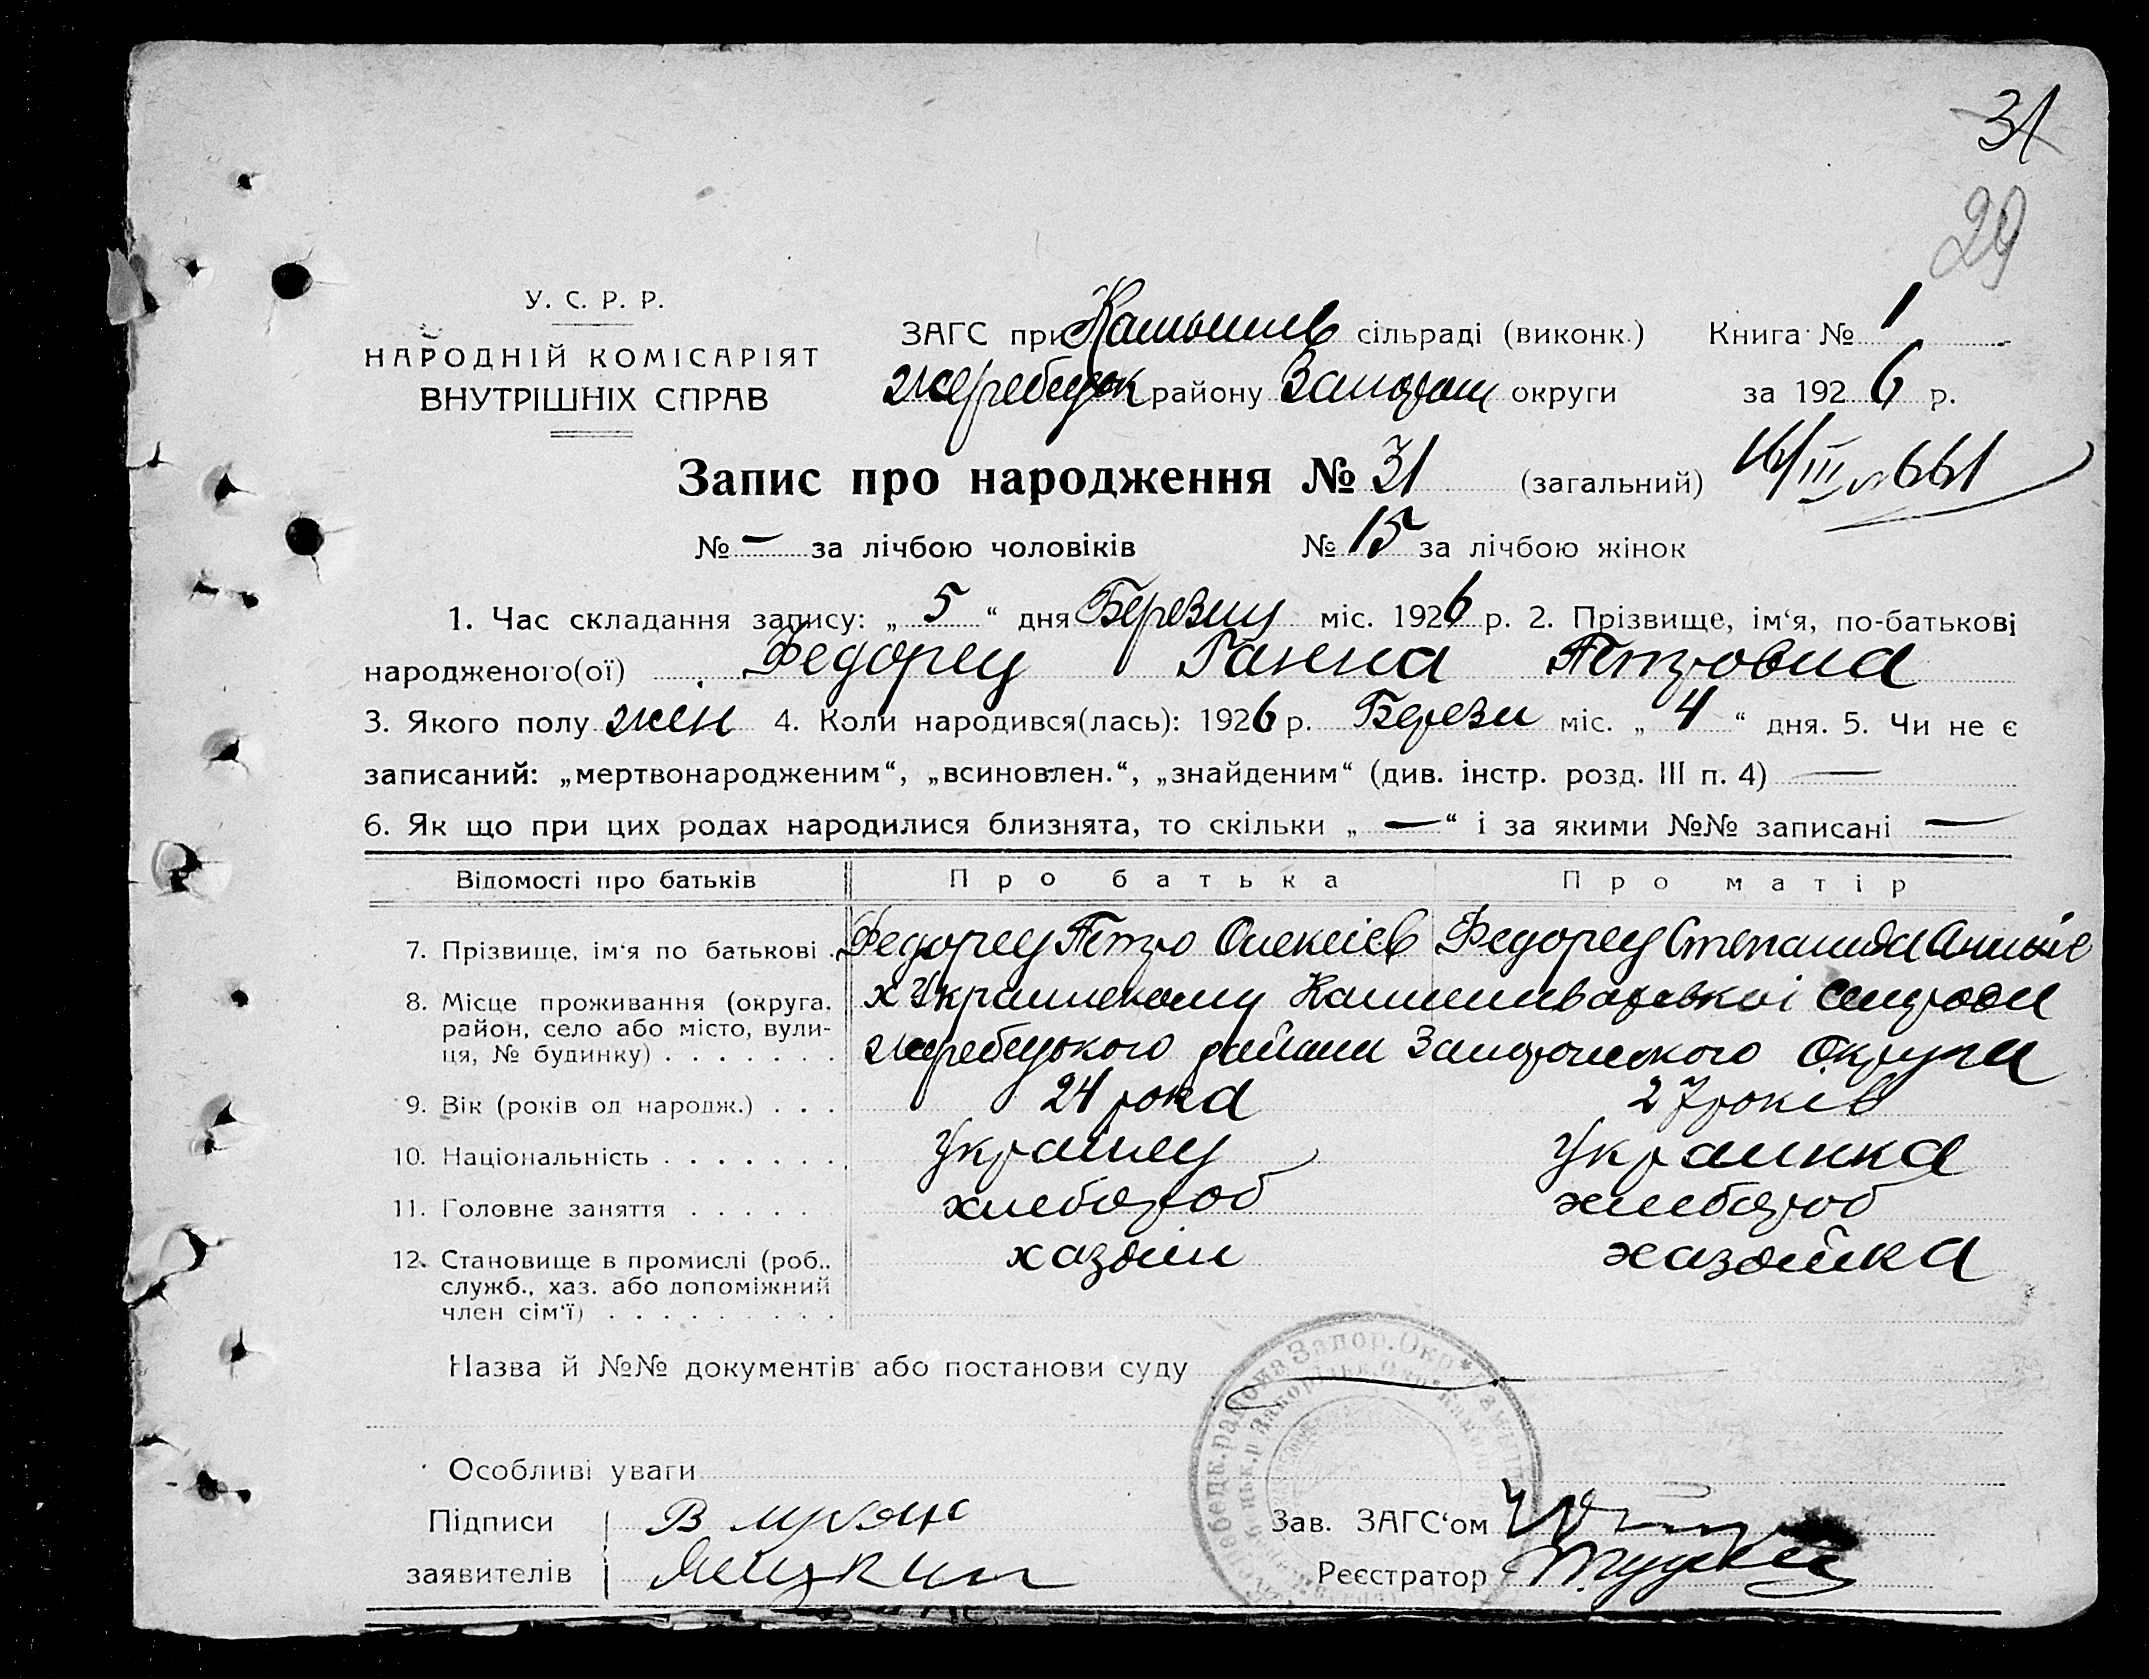 31
29
У. С. Р. Р.
НАРОДНІЙ КОМІСАРІЯТ
ВНУТРІШНІХ СПРАВ
ЗАГС при Камышев сільраді (виконк.) Книга № 1
Жеребецьк району Запорож округи за 1926 р.
Запис про народження № 31 (загальний) 16/III № 661
№ — за лічбою чоловіків № 15 за лічбою жінок
1. Час складання запису: „ 5 “ дня Березня міс. 1926 р. 2. Прізвище, ім‘я, по-батькові
народженого(ої) Федорец Ганна Петровна
3. Якого полу жен 4. Коли народився(лась): 1926 р. Березн міс. „ 4 “ дня. 5. Чи не є
записаний: „мертвонародженим“, „всиновлен.“, „знайденим“ (див. інстр. розд. III п. 4) —
6. Як що при цих родах народилися близнята, то скільки „ — “ і за якими №№ записані —
Відомості про батьків Про батька Про матір
7. Прізвище, ім‘я по батькові . Федорец Петро Олексіев Федорец Степанида
8. Місце проживання (округа, х Украинському
район, село або місто, вули-
ця, № будинку) . . . . . . . Жеребецького района Запорожского Округи
9. Вік (років од народж.) . . . 24 рока 27 років
10. Національність . . . . . . . Украінец Украинка
11. Головне заняття . . . . . хлебороб хлебороб
12. Становище в промислі (роб., хазяин хазяйка
служб., хаз. або допоміжний
член сім‘ї) . . . . . . . . .
Назва й №№ документів або постанови суду
Особливі уваги
Підписи
заявителів
Зав. ЗАГС‘ом
Реєстратор